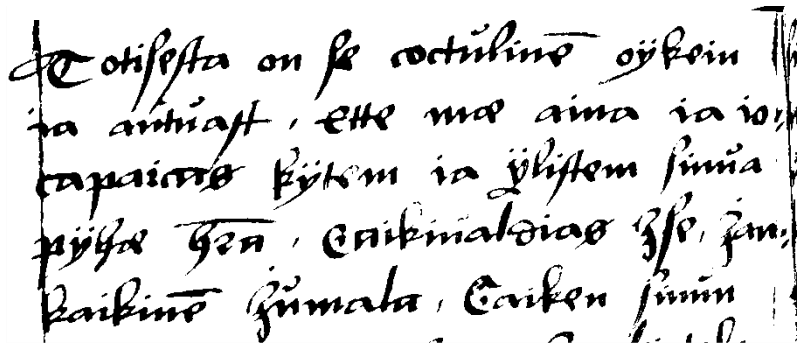 Totisesta on se coctulinē oÿkein
ia autuast, Ette mæ aina ia io-
capaicas kÿtem ia ÿlistem sinua
pÿhæ hrā, Caikiualdias
kaikinē Jumala, Caiken sinun